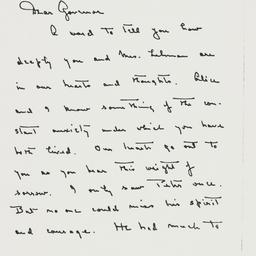 Dear Governor
I want to tell you how
deeply you and Mrs. Lehman are
in our hearts and thoughts. Alice
and I know something of the con-
stant anxiety under which you have
both lived. Our hearts go out to
you as you bear this weight of
sorrow. I only saw Peter once.
But no one could miss his spirit
and courage. He had much to